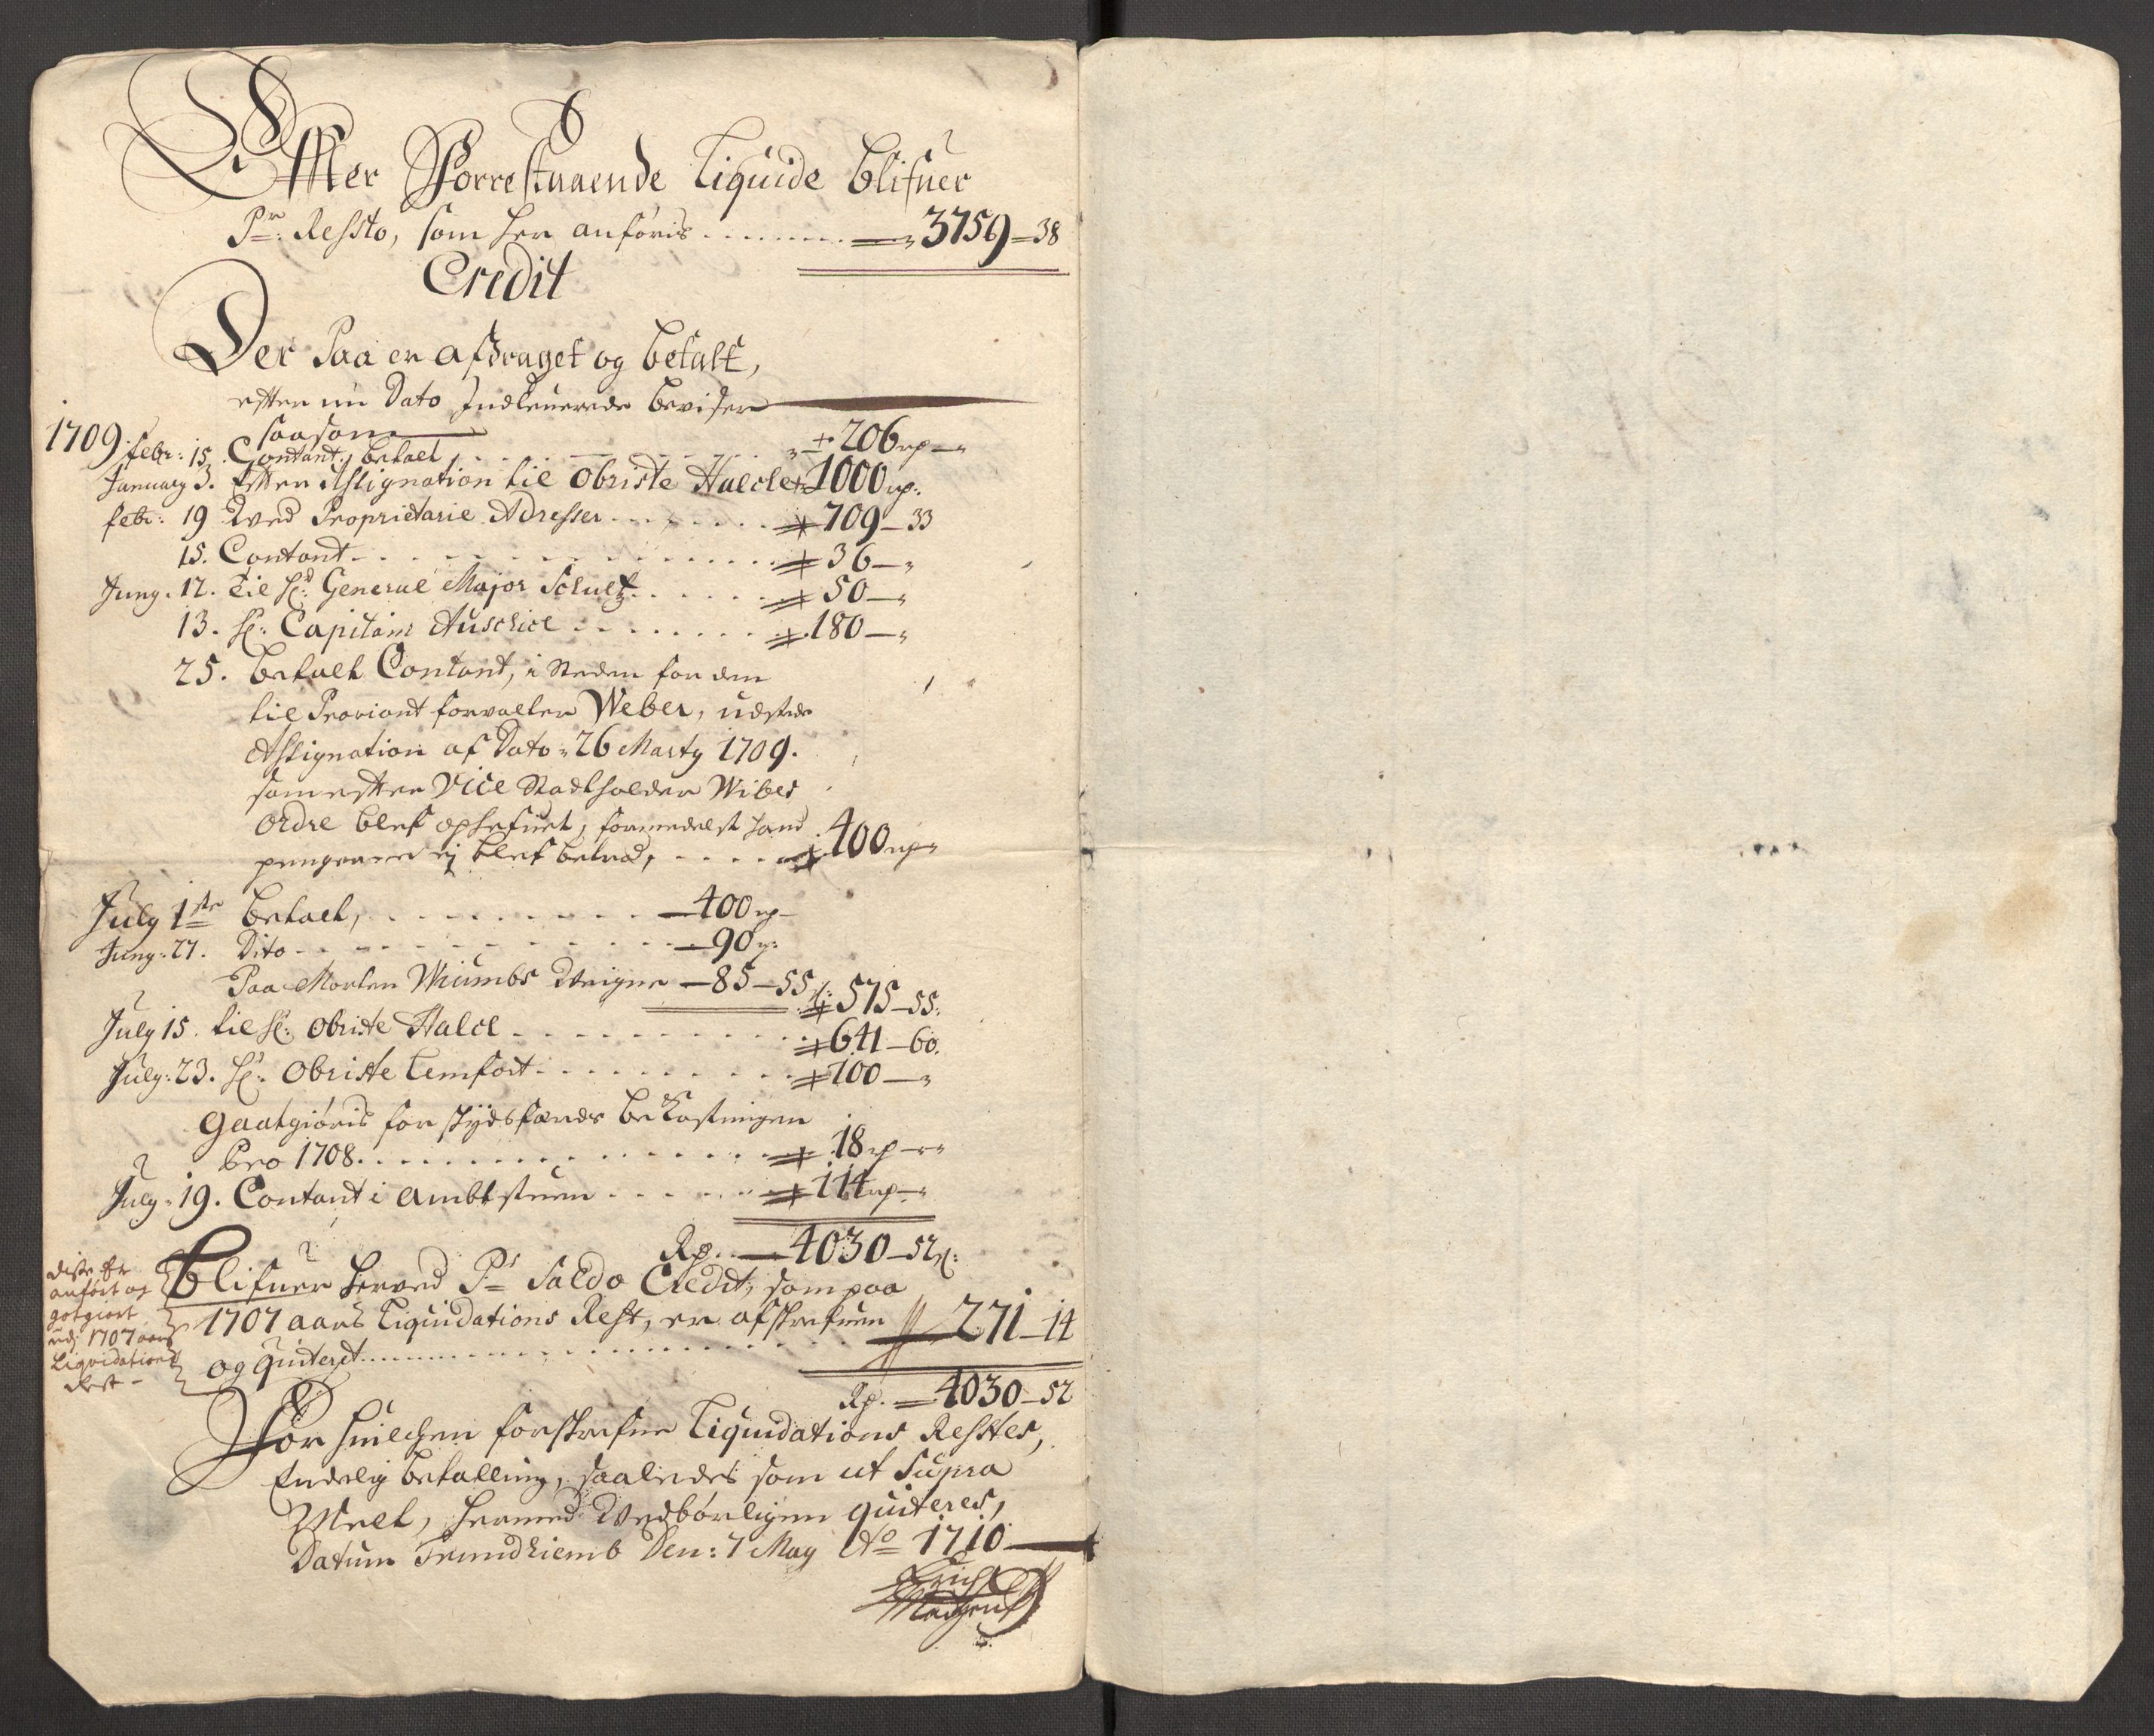 Efter Forrestaaende Liquide blifuer
Pr: Ressto, som her anføris . . . . . . . . 3759 – 38
Credit
Der Paa er afdraget og betalt,
efter nu Dato Indleuerede beviser
saasom
1709. febr: 15. Contant betalt . . . . . . 206 rd –
January 3. Efter Assignation til Obriste Halcke 1000 rd:
febr: 19 Ved Proprietarie Adresser . . . . . 709 – 33
15. Contant . . . . . . 36 –
Juny. 12. til hr: General Major Schultz . . . . . 50 –
13. hr: Capitain Auschiel . . . . . . 180 –
25. betalt Contant, i Steden for den
til Proviant forvalter Weber, udstede
Assignation af Dato 26 Marty 1709.
som efter Vice Stadtholder Wibes
Ordre blef ophefuet, formedelst Hand
pengerne ej blef betroed, . . . . 400 rd
July 1ste betalt, . . . . . . . . 400 rd –
Juny. 27. Dito . . . . . . . . 90 rd
Paa Morten Wiumbs Weigne – 85 – 55 575 – 55.
July 15. til hr: Obriste Halcke . . . . . . 641 – 60.
July: 23. hr: Obriste Lemfort . . . . . . 100 –
Gaatgiøris for skydsfærds bekostningen
Pro 1708 . . . . . . . . 18 rd –
July. 19. Contant i Ambtstuen . . . . . . 114 rd –
Rd. 4030 – 52
Blifuer herved Pr Saldo Credit, som paa
1707 aars Liquidations Rest, er afskrefuen
og quiteret . . . . . . . . 271 – 14
dette er
anført og
gotgiort
udj 1707 aars
Liqvidations
Rest –
Rd. 4030 – 52
For huilchen forskrefne Liquidations Resstes,
Endelig betalling, saaledes som ut Supra
Melt, hermed Vedbørligen quiteres,
Datum Trundhiemb Den: 7 May Ao 1710